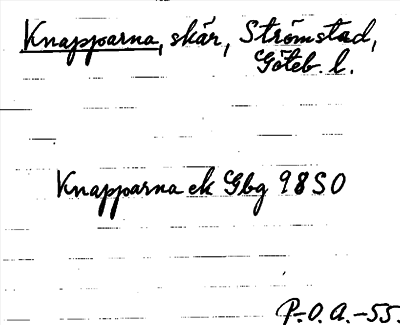 Knapparna, skär, Strömstad,
Göteb. l.
Knapparna ek Gbg 98 SO
P.O.A.-55.